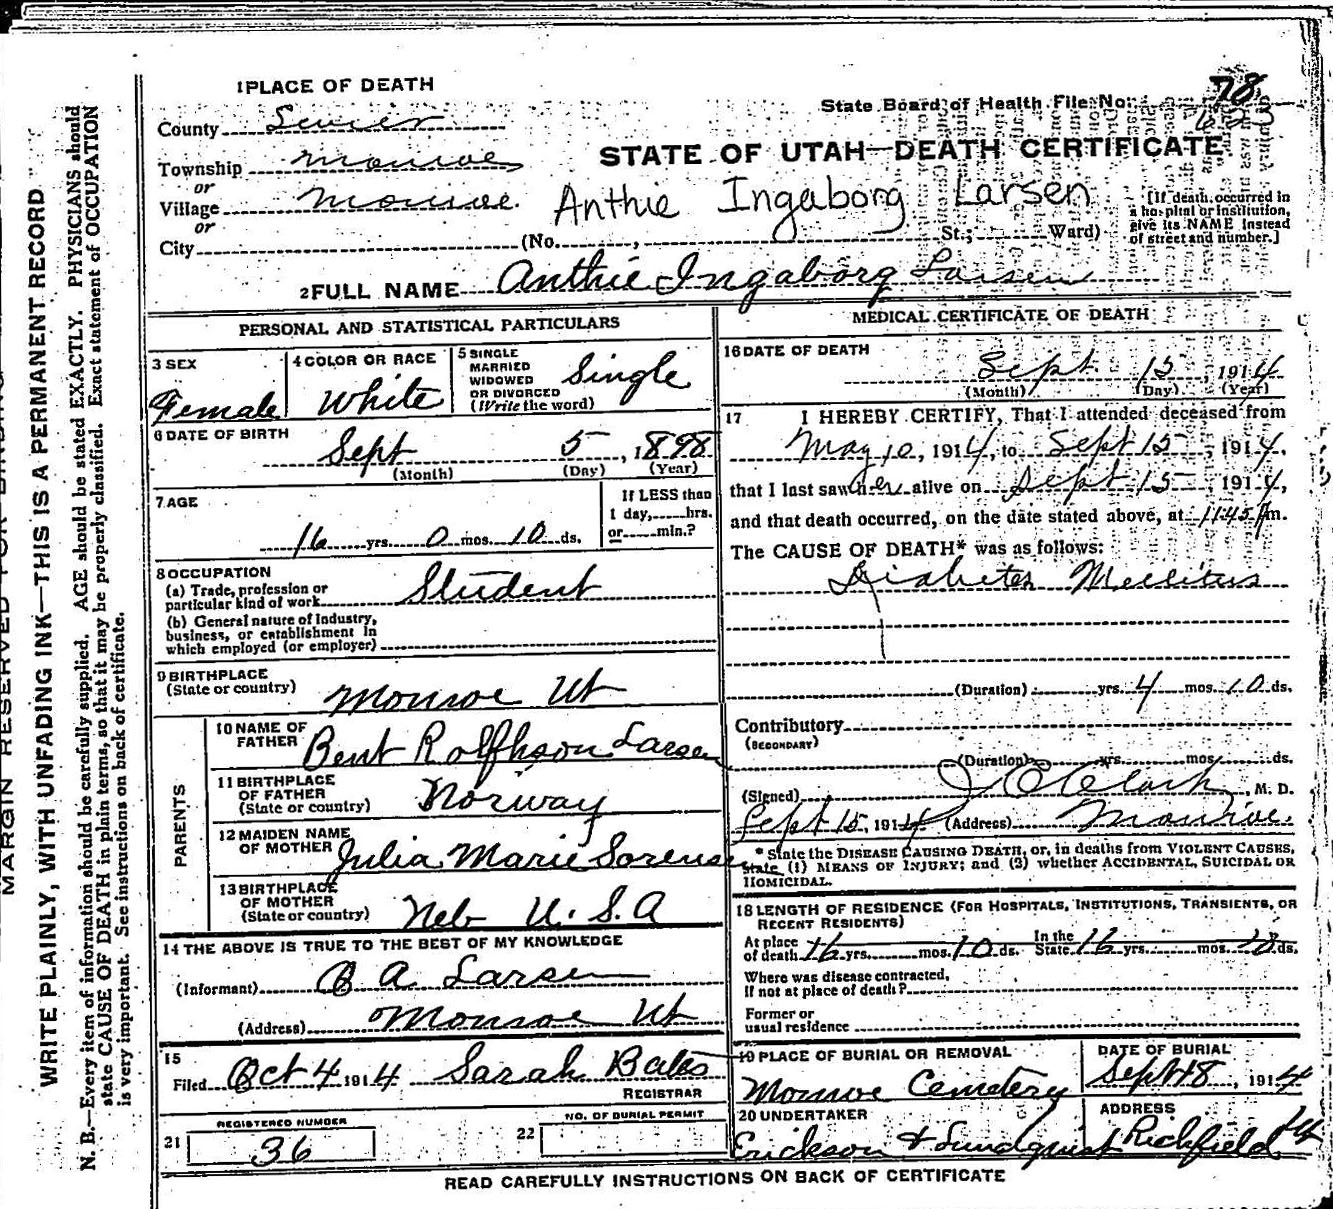 1 PLACE OF DEATH
County Sevier
State Board of Health File No. 78
Township Monroe
STATE OF UTAH—DEATH CERTIFICATE
or
Village Monroe
Anthie Ingaborg Larsen
[If death occurred in a hospital or institution, give its NAME instead of street and number.]
or
City (No. , St.; Ward)
2 FULL NAME Anthie Ingaborg Larsen
PERSONAL AND STATISTICAL PARTICULARS
3 SEX Female
4 COLOR OR RACE White
5 SINGLE MARRIED WIDOWED OR DIVORCED (Write the word) Single
6 DATE OF BIRTH Sept 5, 1898
(Month) (Day) (Year)
7 AGE
16 yrs. 0 mos. 10 ds.
If LESS than 1 day, hrs. or min.?
8 OCCUPATION
(a) Trade, profession or particular kind of work Student
(b) General nature of Industry, business, or establishment in which employed (or employer)
9 BIRTHPLACE
(State or country) Monroe Ut
PARENTS
10 NAME OF FATHER Bent Rolfhson Larsen
11 BIRTHPLACE OF FATHER (State or country) Norway
12 MAIDEN NAME OF MOTHER Julia Marie Sorensen
13 BIRTHPLACE OF MOTHER (State or country) Neb U.S.A
14 THE ABOVE IS TRUE TO THE BEST OF MY KNOWLEDGE
(Informant) B A Larsen
(Address) Monroe Ut
15
Filed Oct 4 1914 Sarah Bates
REGISTRAR
21 REGISTERED NUMBER 36
22 NO. OF BURIAL PERMIT
MEDICAL CERTIFICATE OF DEATH
16 DATE OF DEATH
Sept 15 1914
(Month) (Day) (Year)
17 I HEREBY CERTIFY, That I attended deceased from
May 10, 1914, to Sept 15, 1914,
that I last saw her alive on Sept 15, 1914,
and that death occurred, on the date stated above, at 11:45 Pm.
The CAUSE OF DEATH* was as follows:
Diabetes Mellitus
(Duration) yrs. 4 mos. 10 ds.
Contributory
(SECONDARY)
(Duration) yrs. mos. ds.
(Signed) J O Clark, M. D.
Sept 15, 1914 (Address) Monroe.
* State the DISEASE CAUSING DEATH, or, in deaths from VIOLENT CAUSES,
state (1) MEANS OF INJURY; and (2) whether ACCIDENTAL, SUICIDAL OR
HOMICIDAL.
18 LENGTH OF RESIDENCE (FOR HOSPITALS, INSTITUTIONS, TRANSIENTS, OR
RECENT RESIDENTS)
At place of death 16 yrs. mos. 10 ds. In the State 16 yrs. mos. 10 ds.
Where was disease contracted,
If not at place of death?
Former or
usual residence
19 PLACE OF BURIAL OR REMOVAL
Monroe Cemetery
DATE OF BURIAL
Sept 18, 1914
20 UNDERTAKER
Erickson & Sundquist
ADDRESS
Richfield Ut
READ CAREFULLY INSTRUCTIONS ON BACK OF CERTIFICATE
WRITE PLAINLY, WITH UNFADING INK—THIS IS A PERMANENT RECORD
N. B.—Every item of information should be carefully supplied. AGE should be stated EXACTLY. PHYSICIANS should
state CAUSE OF DEATH in plain terms, so that it may be properly classified. Exact statement of OCCUPATION
is very important. See instructions on back of certificate.
MARGIN RESERVED FOR